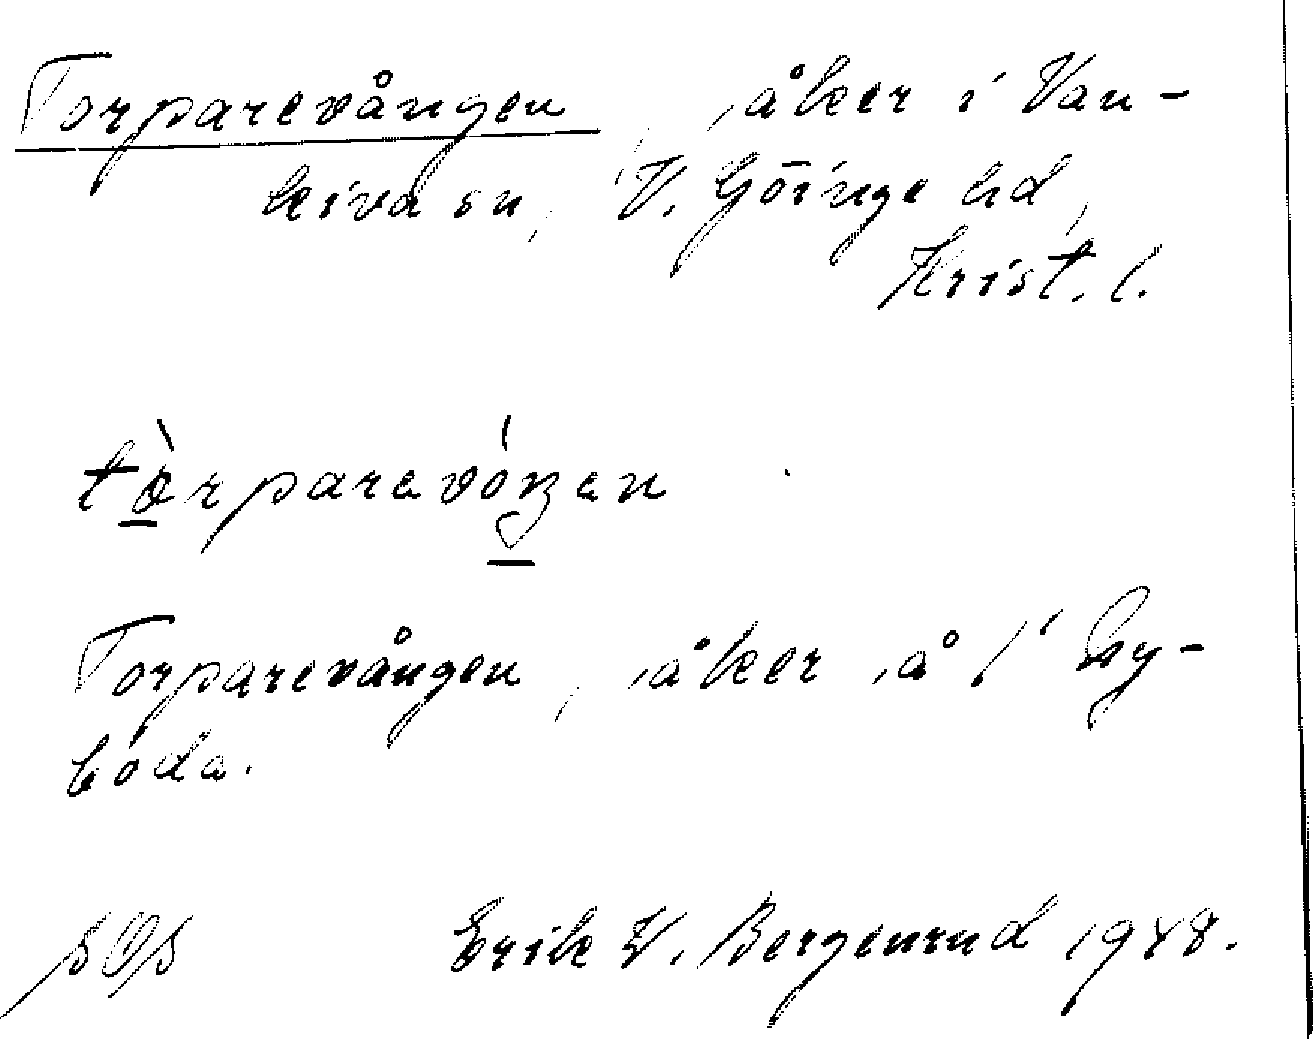 Torparevången, åker i Van-
kiva sn, V. Göinge hd,
Krist. l.
tòrparavóŋan
Torparevången, åker å 1' Ny-
boda.
Erik W. Bergenrud 1948.